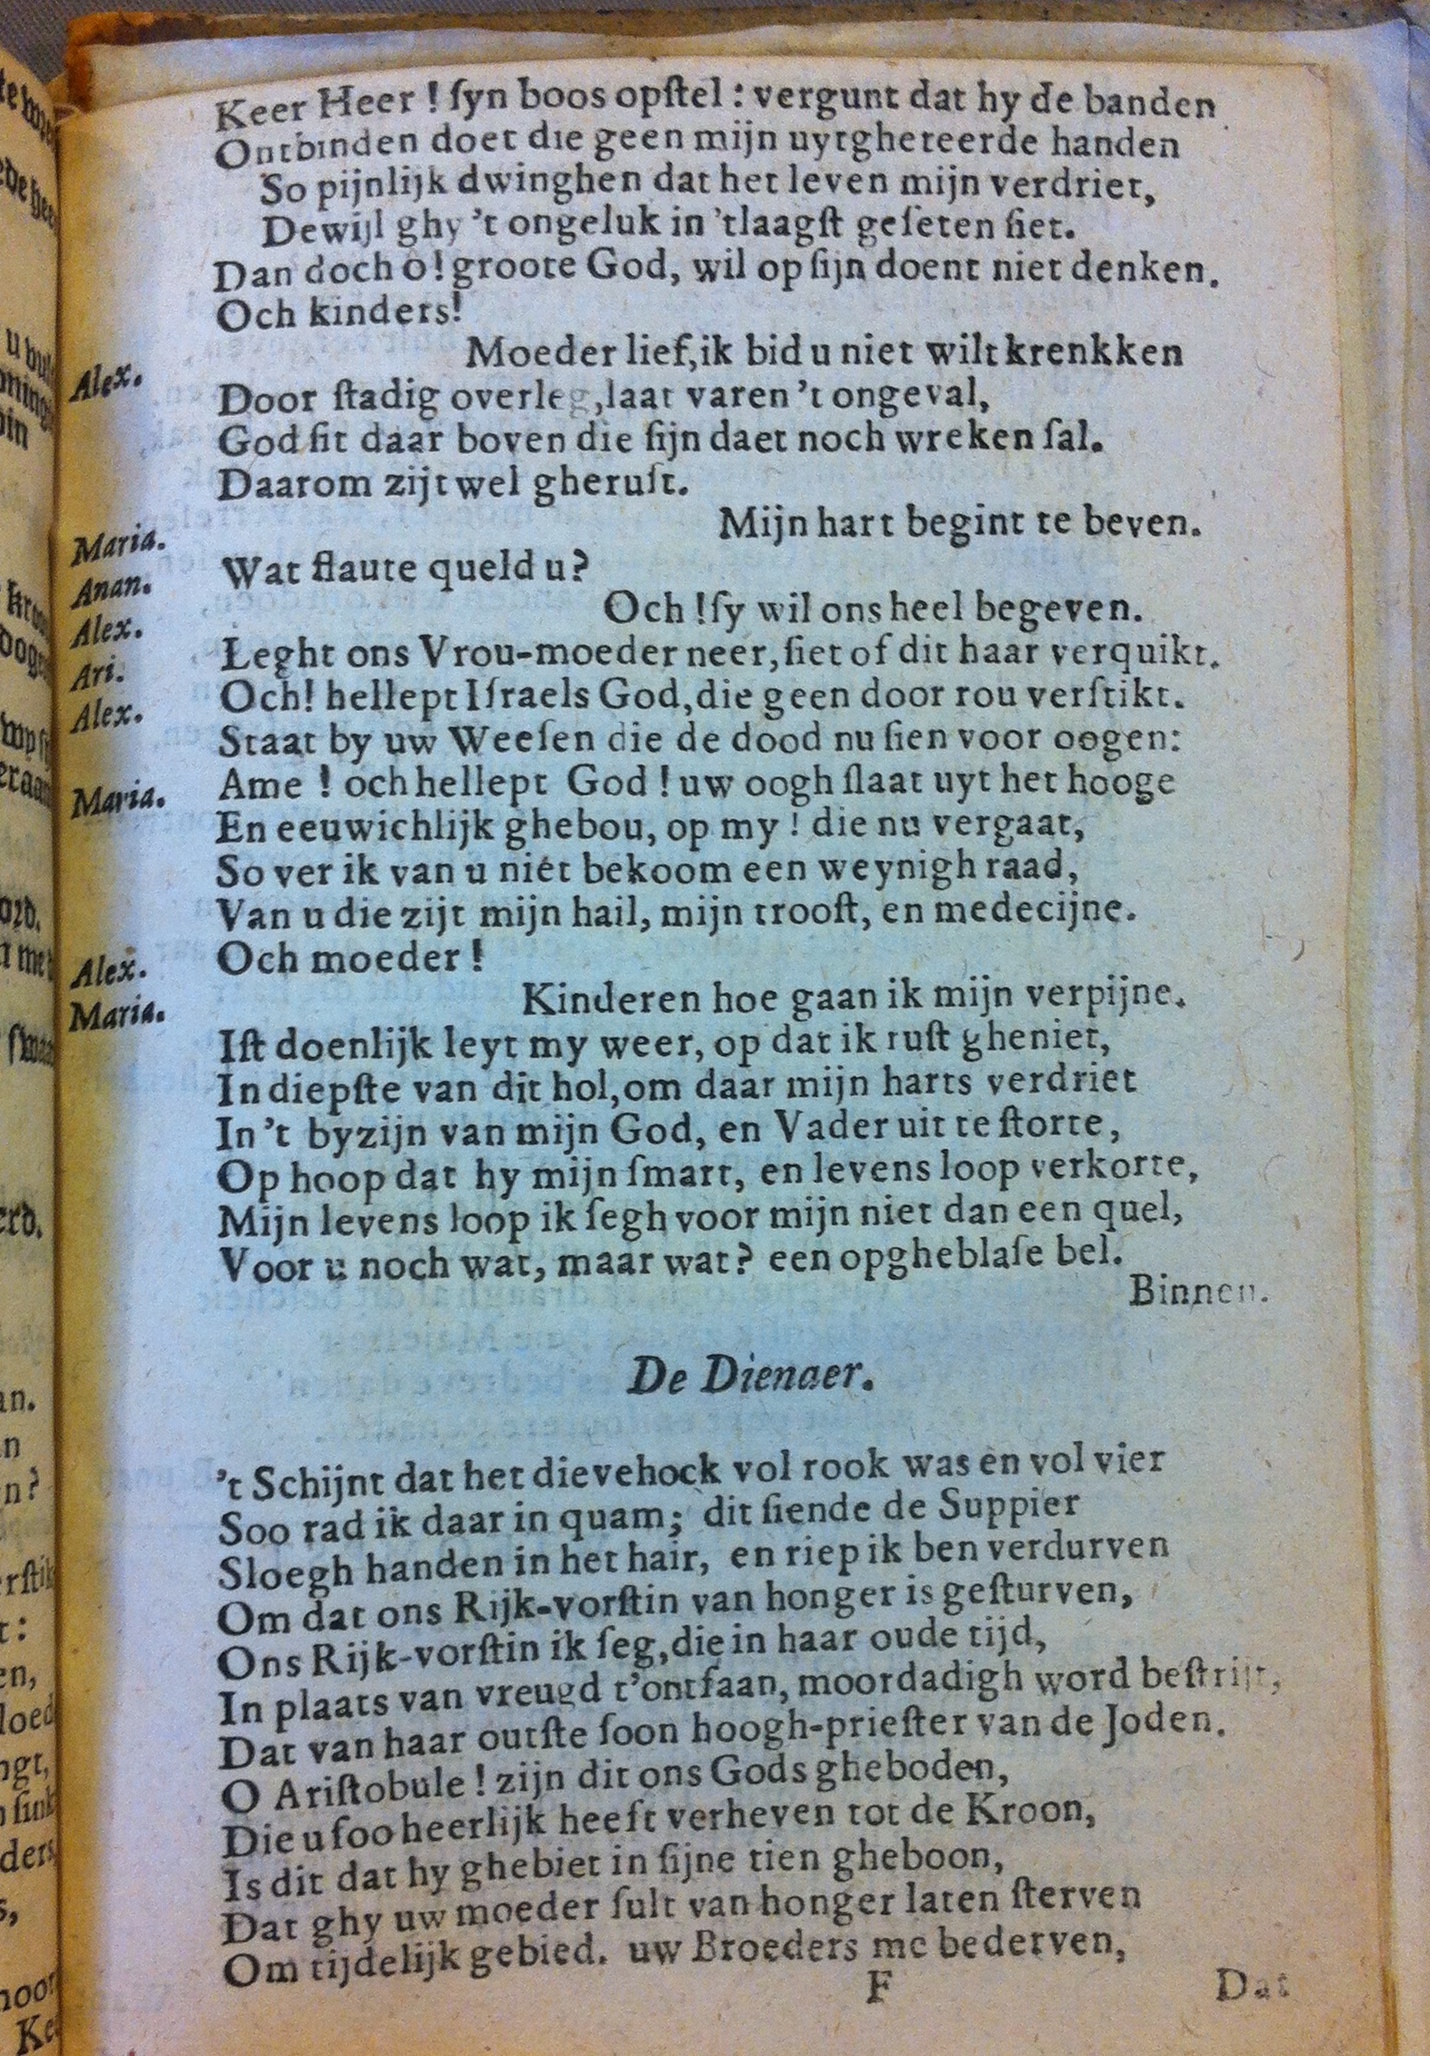 Keer Heer ! ſyn boos opſtel : vergunt dat hy de banden
Ontbinden doet die geen mijn uytghereerde handen
So pijnlijk dwinghen dat het leven mijn verdriet,
Dewijl ghy 't ongeluk in 'tlaagſt geſeten ſiet.
Dan doch ô! groote God, wil op ſijn doent niet denken.
Och kinders!
Alex. Moeder lief, ik bid u niet wilt krenkken
Door ſtadig overleg, laat varen 't ongeval,
God ſit daar boven die ſijn daet noch wreken ſal.
Daarom zijt wel gheruſt.
Maria. Mijn hart begint te beven.
Anan. Wat flaute queld u?
Alex. Och ! ſy wil ons heel begeven.
Ari. Leght ons Vrou-moeder neer, ſiet of dit haar verquikt.
Alex. Och! hellept Iſraels God, die geen door rou verſtikt.
Staat by uw Weeſen die de dood nu ſien voor oogen:
Maria. Ame ! och hellept God ! uw oogh ſlaat uyt het hooge
En eeuwichlijk ghebou, op my ! die nu vergaat,
So ver ik van u niet bekoom een weynigh raad,
Van u die zijt mijn hail, mijn trooſt, en medecijne.
Alex. Och moeder !
Maria. Kinderen hoe gaan ik mijn verpijne.
Iſt doenlijk leyt my weer, op dat ik ruſt gheniet,
In diepſte van dit hol, om daar mijn harts verdriet
In 't byzijn van mijn God, en Vader uit te ſtorte,
Op hoop dat hy mijn ſmart, en levens loop verkorte,
Mijn levens loop ik ſegh voor mijn niet dan een quel,
Voor u noch wat, maar wat? een opgheblaſe bel.
Binnen.
De Dienaer.
't Schijnt dat het dievehock vol rook was en vol vier
Soo rad ik daar in quam; dit ſiende de Suppier
Sloegh handen in het hair, en riep ik ben verdurven
Om dat ons Rijk-vorſtin van honger is geſturven,
Ons Rijk-vorſtin ik ſeg, die in haar oude tijd,
In plaats van vreugd t'ontfaan, moordadigh word beſtrijt,
Dat van haar outſte ſoon hoogh-prieſter van de Joden.
O Ariſtobule ! zijn dit ons Gods gheboden,
Die u ſoo heerlijk heeft verheven tot de Kroon,
Is dit dat hy ghebiet in ſijne tien gheboon,
Dat ghy uw moeder ſult van honger laten ſterven
Om tijdelijk gebied. uw Broeders me bederven,
F Dat